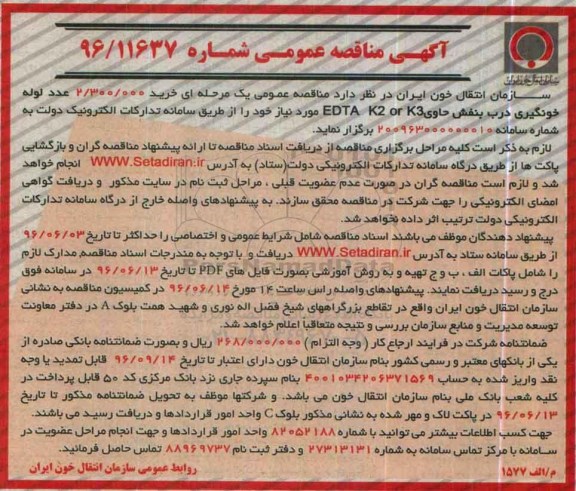 آگهـی مناقصه عمومـی شمـاره ۹۶/۱۱۶۳۷
ســازمان انتقال خون ایـران در نظر دارد مناقصه عمومی یک مرحله ای خرید ۲/۳۰۰/۰۰۰ عدد لوله
خونگیری درب بنفش حاوی EDTA K2 or K3 مورد نیاز خود را از طریق سامانه تدارکات الکترونیک دولت به
شماره سامانه ۲۰۰۹۶۳۰۰۰۰۰۰۰۱۰ برگزار نماید.
لازم به ذکر است کلیه مراحل برگزاری مناقصه از دریافت اسناد مناقصه تا ارائه پیشنهاد مناقصه گران و بازگشایی
پاکت ها از طریق درگاه سامانه تدارکات الکترونیکی دولت(ستاد) به آدرس WWW.Setadiran.ir انجام خواهد
شد و لازم است مناقصه گران در صورت عدم عضویت قبلی ، مراحل ثبت نام در سایت مذکور و دریافت گواهی
امضای الکترونیکی را جهت شرکت در مناقصه محقق سازند. به پیشنهادهای واصله خارج از درگاه سامانه تدارکات
الکترونیکی دولت ترتیب اثر داده نخواهد شد.
پیشنهاد دهندگان موظف می باشند اسناد مناقصه شامل شرایط عمومی و اختصاصی را حداکثر تا تاریخ ۹۶/۰۶/۰۳
از طریق سامانه ستاد به آدرس WWW.Setadiran.ir دریافت و با توجه به مندرجات اسناد مناقصه, مدارک لازم
را شامل پاکات الف ، ب و ج تهیه و به روش آموزشی بصورت فایل های PDF تا تاریخ ۹۶/۰۶/۱۳ در سامانه فوق
درج و رسید دریافت نمایند. پیشنهادهای واصله راس ساعت ۱۴ مورخ ۹۶/۰۶/۱۴ در کمیسیون مناقصه به نشانی
سازمان انتقال خون ایران واقع در تقاطع بزرگراههای شیخ فضل اله نوری و شهید همت بلوک A در دفتر معاونت
توسعه مدیریت و منابع سازمان بررسی و نتیجه متعاقبا اعلام خواهد شد.
ضمانتنامه شرکت در فرایند ارجاع کار ( وجه التزام ) ۲۶۸/۰۰۰/۰۰۰ ریال و بصورت ضمانتنامه بانکی صادره از
یکی از بانکهای معتبر و رسمی کشور بنام سازمان انتقال خون دارای اعتبار تا تاریخ ۹۶/۰۹/۱۴ قابل تمدید یا وجه
نقد واریز شده به حساب ۴۰۰۱۰۳۴۲۰۶۳۷۱۵۶۹ بنام سپرده جاری نزد بانک مرکزی کد ۵۰ قابل پرداخت در
کلیه شعب بانک ملی بنام سازمان انتقال خون می باشد. و شرکتها موظف به تحویل ضمانتنامه مذکور تا تاریخ
۹۶/۰۶/۱۳ در پاکت لاک و مهر شده به نشانی مذکور بلوک C واحد امور قراردادها و دریافت رسید می باشند.
جهت کسب اطلاعات بیشتر می توانید با شماره ۸۲۰۵۲۱۸۸ واحد امور قراردادها و جهت انجام مراحل عضویت در
سامانه با مرکز تماس سامانه به شماره ۲۷۳۱۳۱۳۱ و دفتر ثبت نام ۸۸۹۶۹۷۳۷ تماس حاصل فرمائید.
م/الف ۱۵۷۷ روابط عمومی سازمان انتقال خون ایران